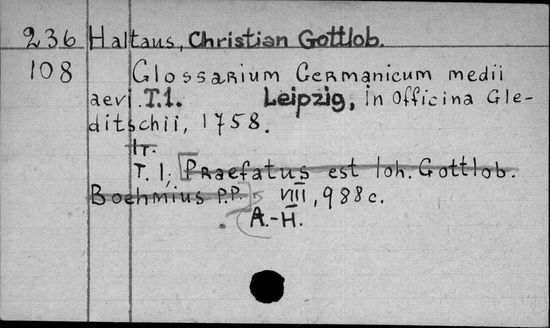 236 Haltaus, Christian Gottlob.
108 Glossarium Germanicum medii
aevi. T.1. Leipzig, in Officina Gle-
ditschii, 1758.
Tr.
T. 1; [Praefatus est Ioh. Gottlob.
Boehmius P.P.] VIII, 988 c.
A.-H.